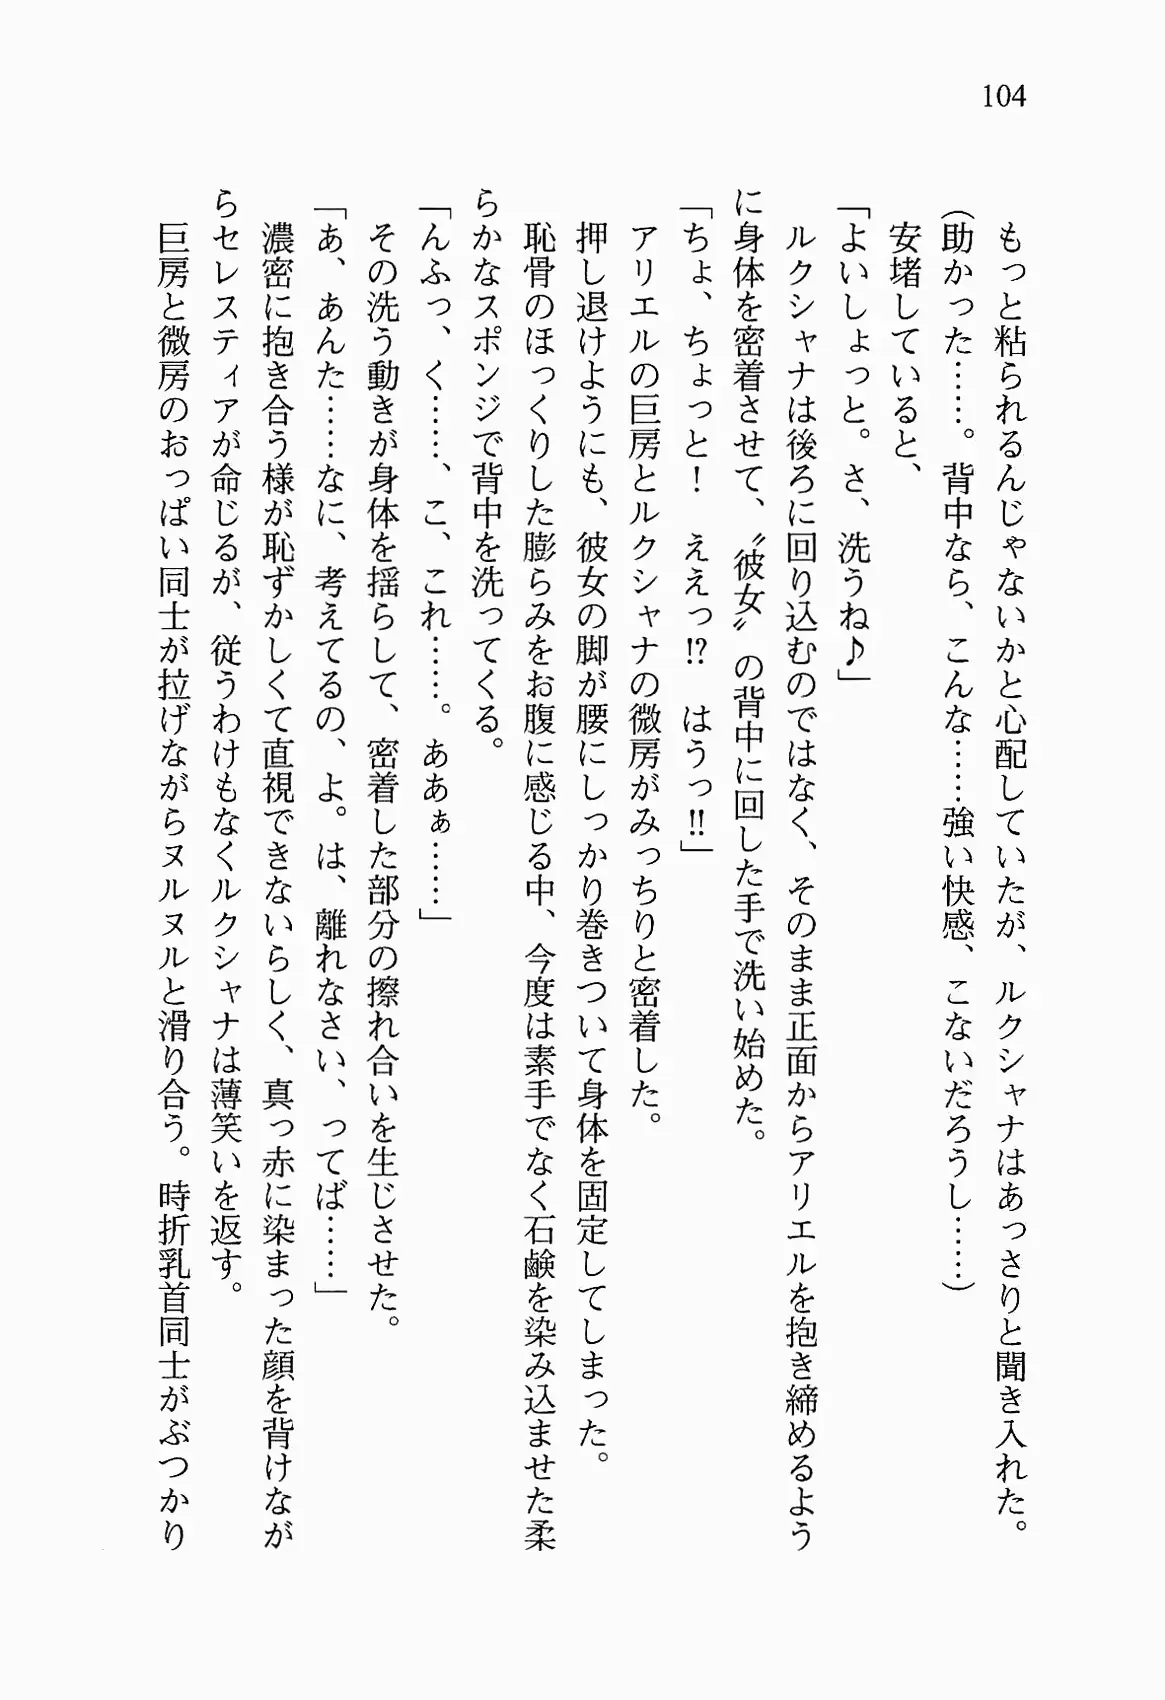 104
　もっと粘られるんじゃないかと心配していたが、ルクシャナはあっさりと聞き入れた。
（助かった……。背中なら、こんな……強い快感、こないだろうし……）
　安堵していると、
「よいしょっと。さ、洗うね♪」
　ルクシャナは後ろに回り込むのではなく、そのまま正面からアリエルを抱き締めるよう
に身体を密着させて、〝彼女〟の背中に回した手で洗い始めた。
「ちょ、ちょっと！　ええっ⁉　はうっ‼」
　アリエルの巨房とルクシャナの微房がみっちりと密着した。
　押し退けようにも、彼女の脚が腰にしっかり巻きついて身体を固定してしまった。
　恥骨のほっくりした膨らみをお腹に感じる中、今度は素手でなく石鹸を染み込ませた柔
らかなスポンジで背中を洗ってくる。
「んふっ、く……、こ、これ……。ああぁ……」
　その洗う動きが身体を揺らして、密着した部分の擦れ合いを生じさせた。
「あ、あんた……なに、考えてるの、よ。は、離れなさい、ってば……」
　濃密に抱き合う様が恥ずかしくて直視できないらしく、真っ赤に染まった顔を背けなが
らセレスティアが命じるが、従うわけもなくルクシャナは薄笑いを返す。
　巨房と微房のおっぱい同士が拉げながらヌルヌルと滑り合う。時折乳首同士がぶつかり